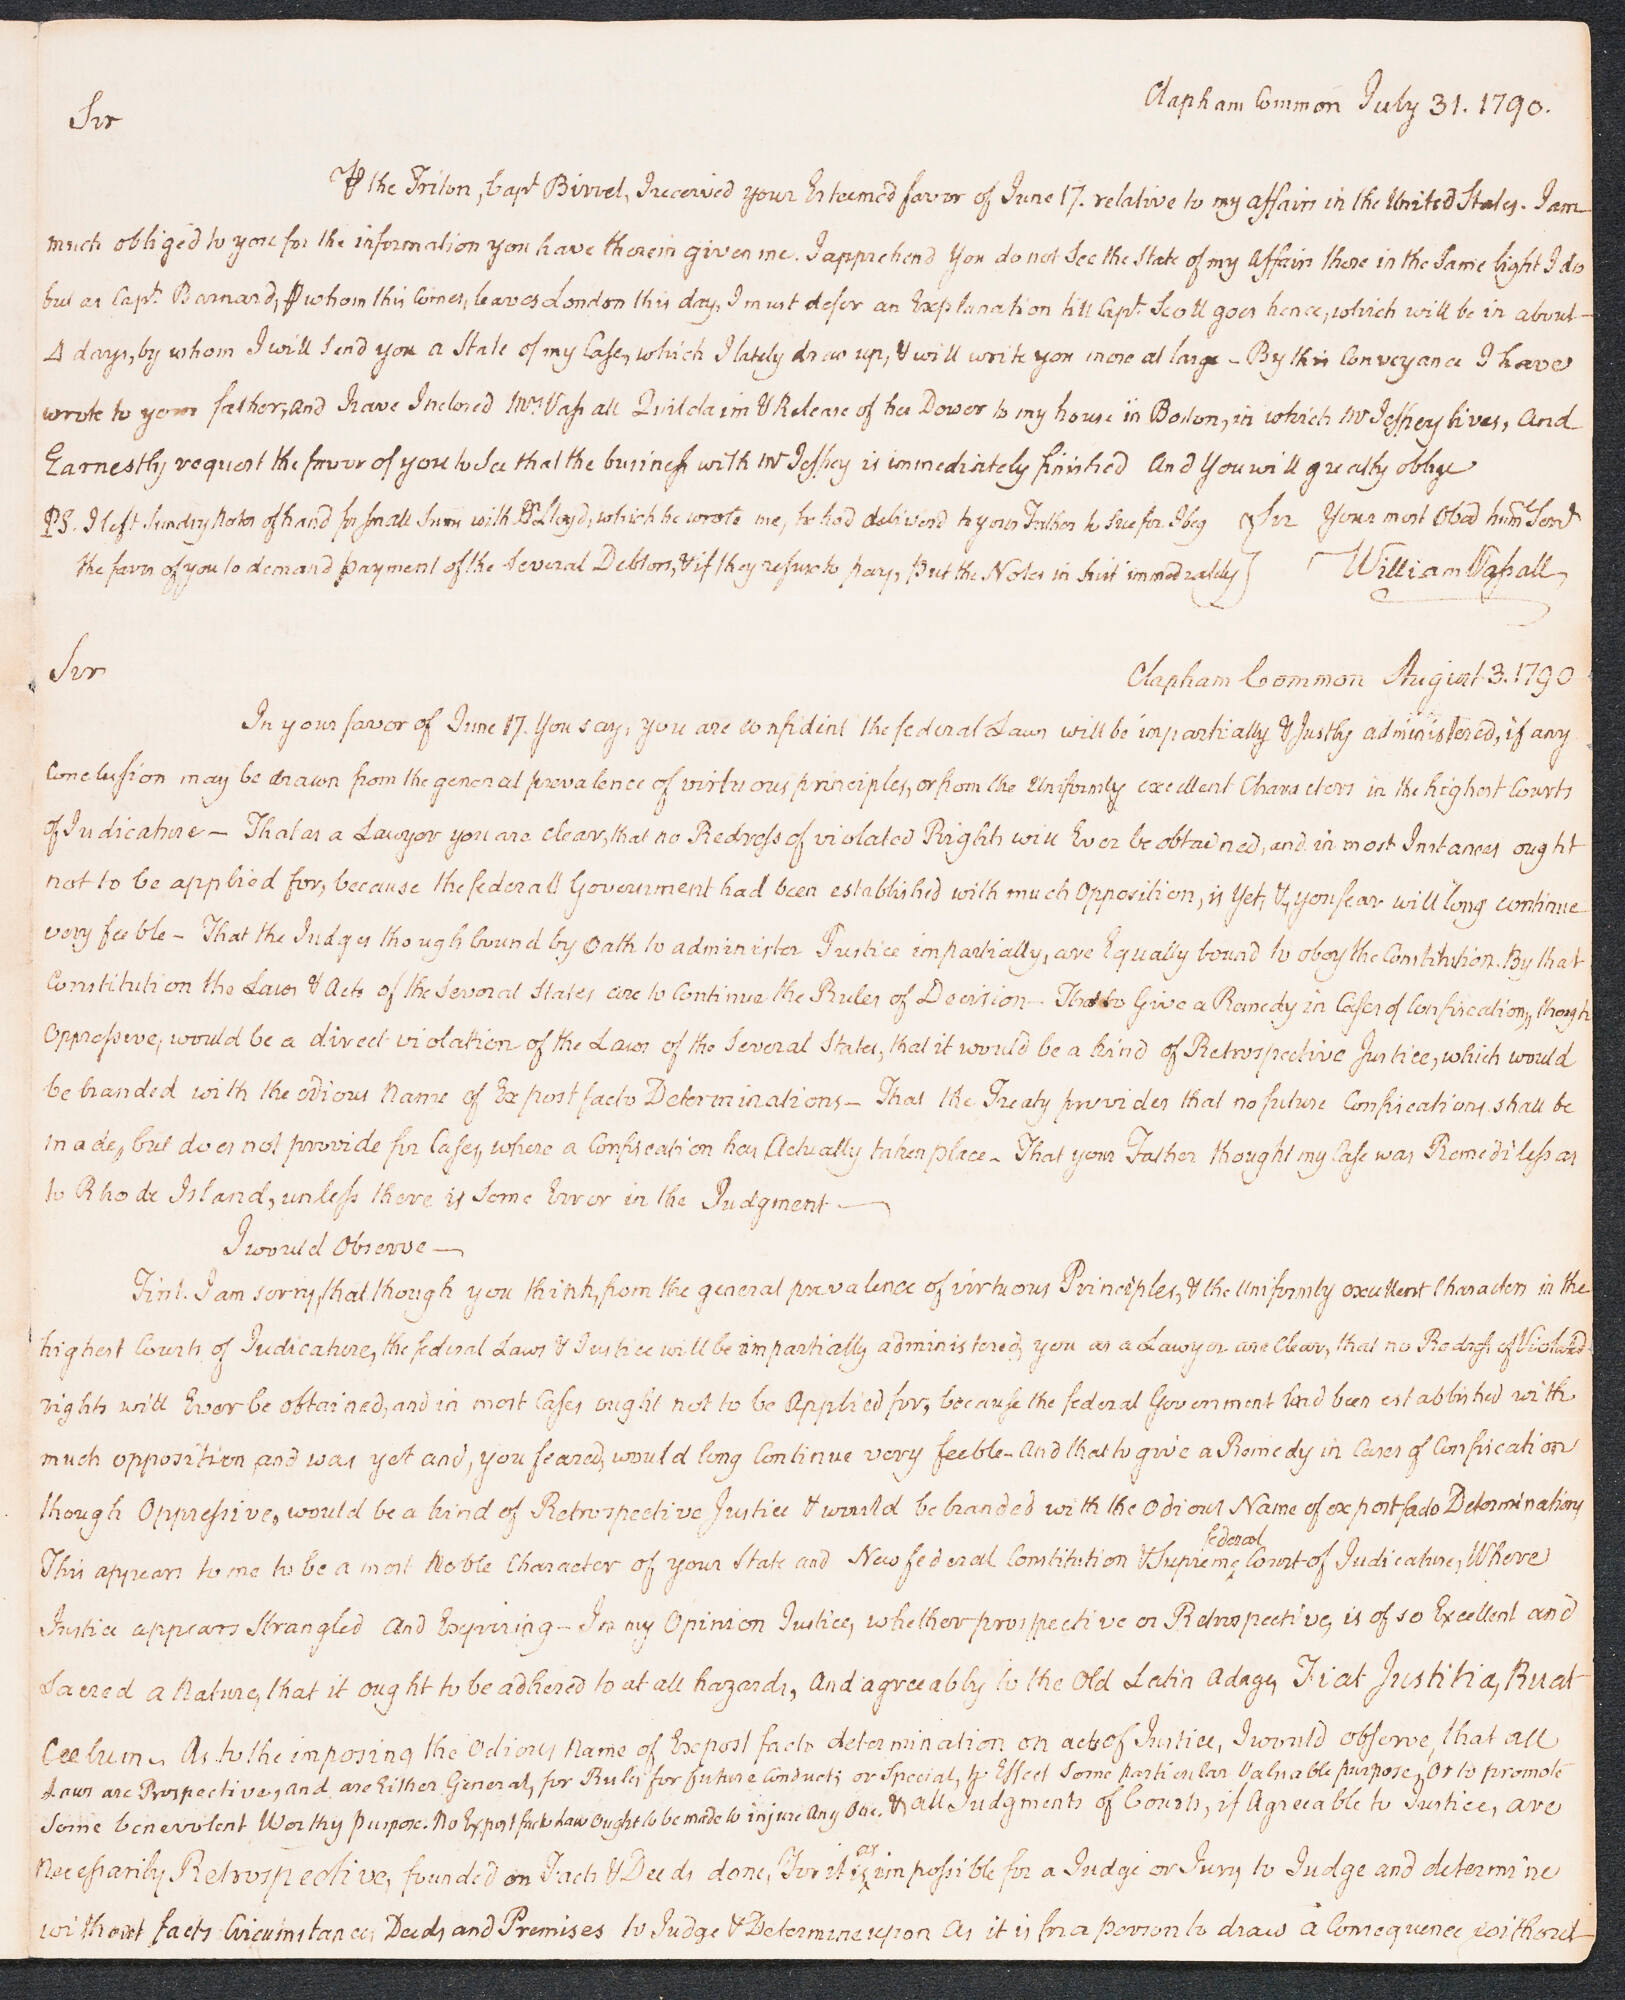 Clapham Common July 31. 1790.
Sir
⅌ the Triton, Capt. Birrel, I received your Esteemed favor of June 17. relative to my affairs in the United States. I am
much obliged to you for the information you have therein given me. I apprehend you do not See the State of my Affairs there in the Same light I do
but as Capt. Barnard, ⅌ whom this Comes, leaves London this day, I must defer an Explanation till Capt. Scott goes hence, which will be in about
4 days, by whom I will Send you a State of my Case, which I lately drew up, & will write you more at large – By this Conveyance I have
wrote to your father, and Have Inclosed Mrs. Vassall Quitclaim & Release of her Dower to my house in Boston, in which Mr Jeffrey lives, And
Earnestly request the favor of you to See that the business with Mr Jeffrey is immediately finished And You will greatly oblige
PS. I left Sundry Notes of hand for small Sums with Dr Lloyd, which he wrote me, he had deliver'd to your Father to Sue for I beg Sir Your most Obed humb Servt
the favor of you to demand payment of the Several Debtors, & if they refuse to pay, Put the Notes in Suit immediately} William Vassall
Sir Clapham Common August 3. 1790
In your favor of June 17. You say, you are confident the federal Laws will be impartially & Justly administered, if any
Conclusion may be drawn from the general prevalence of virtuous principles, or from the Uniformly excellent Characters in the highest Courts
of Judicature – That as a Lawyer you are clear, that no Redress of violated Rights will Ever be obtained, and in most Instances ought
not to be applied for, because the federall Government had been established with much Opposition, is Yet, &, you fear will long continue
very feeble – That the Judges though bound by Oath to administer Justice impartially, are Equally bound to obey the Constitution. By that
Constitution the Laws & Acts of the Several States are to Continue the Rules of Decision – That to Give a Remedy in Cases of Confiscation, though
Oppressive, would be a direct violation of the Laws of the Several States, that it would be a kind of Retrospective Justice, which would
be branded with the odious Name of Ex post facto Determinations – That the Treaty provides that no future Confiscations shall be
made, but does not provide for Cases, where a Confiscation has Actually taken place – That your Father thought my Case was Remediless as
to Rhode Island, unless there is Some Error in the Judgment —
I would Observe —
First. I am sorry, that though you think, from the general prevalence of virtuous Principles, & the Uniformly excellent Characters in the
highest Courts of Judicature, the federal Laws & Justice will be impartially administered, you as a Lawyer are Clear, that no Redress of Violated
rights will Ever be obtained, and in most Cases ought not to be Applied for, because the federal Government had been established with
much opposition and was yet and, you feared, would long Continue very feeble – and that to give a Remedy in Cases of Confiscation
though Oppressive, would be a kind of Retrospective Justice & would be branded with the Odious Name of ex post facto Determinations
This appears to me to be a most Noble Character of your State and New federal Constitution & Supreme federal Court of Judicature, Where
Justice appears Strangled And Expiring – In my Opinion Justice, whether prospective or Retrospective, is of so Excellent and
Sacred a Nature, that it ought to be adhered to at all hazards, And agreeably to the Old Latin Adage, Fiat Justitia, Ruat
Coelum. As to the imposing the Odious Name of Ex post facto determination on acts of Justice, I would observe, that all
Laws are Prospective, and are Either General, for Rules for future Conduct, or Special, to Effect Some particular Valuable purpose, Or to promote
Some benevolent Worthy Purpose. No Ex post facto Law ought to be made to injure Any One. & all Judgments of Courts, if Agreeable to Justice, are
Necessarily Retrospective, founded on Facts & Deeds done, For it is as impossible for a Judge or Jury to Judge and determine
without facts Circumstances Deeds and Premises to Judge & Determine upon As it is for a person to draw a Consequence without